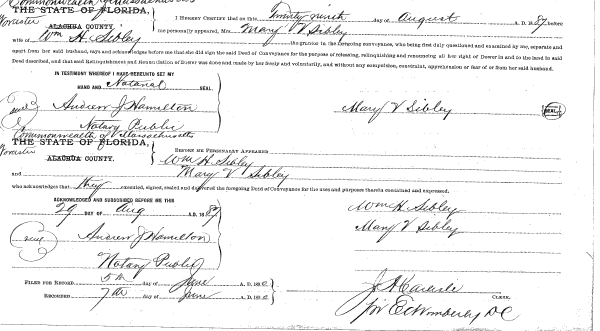 Commonwealth of Massachusetts
THE STATE OF FLORIDA,
Worcester
ALACHUA COUNTY.
I HEREBY CERTIFY that on this Twenty ninth day of August A. D. 1887 before
me personally appeared, Mrs. Mary V Sibley
wife of Wm H. Sibley the grantor in the foregoing conveyance, who being first duly questioned and examined by me, separate and
apart from her said husband, says and acknowledges before me that she did sign the said Deed of Conveyance for the purpose of releasing, relinquishing and renouncing all her right of Dower in and to the land in said
Deed described, and that said Relinquishment and Renunciation of Dower was done and made by her freely and voluntarily, and without any compulsion, constraint, apprehension or fear of or from her said husband.
IN TESTIMONY WHEREOF I HAVE HEREUNTO SET MY
HAND AND Notarial SEAL.
Seal
Andrew J Hamilton
Notary Public
Mary V Sibley SEAL
Commonwealth of Massachusetts
THE STATE OF FLORIDA,
Worcester
ALACHUA COUNTY.
BEFORE ME PERSONALLY APPEARED
Wm H. Sibley
and Mary V Sibley
who acknowledges that they executed, signed, sealed and delivered the foregoing Deed of Conveyance for the uses and purposes therein contained and expressed.
ACKNOWLEDGED AND SUBSCRIBED BEFORE ME THIS
29 DAY OF Aug A.D. 1887
Wm H. Sibley
Mary V Sibley
Seal
Andrew J Hamilton
Notary Public
FILED FOR RECORD 5th day of June A. D. 188
RECORDED 7th day of June A. D. 188
CLERK.
for E C Wimberly DC